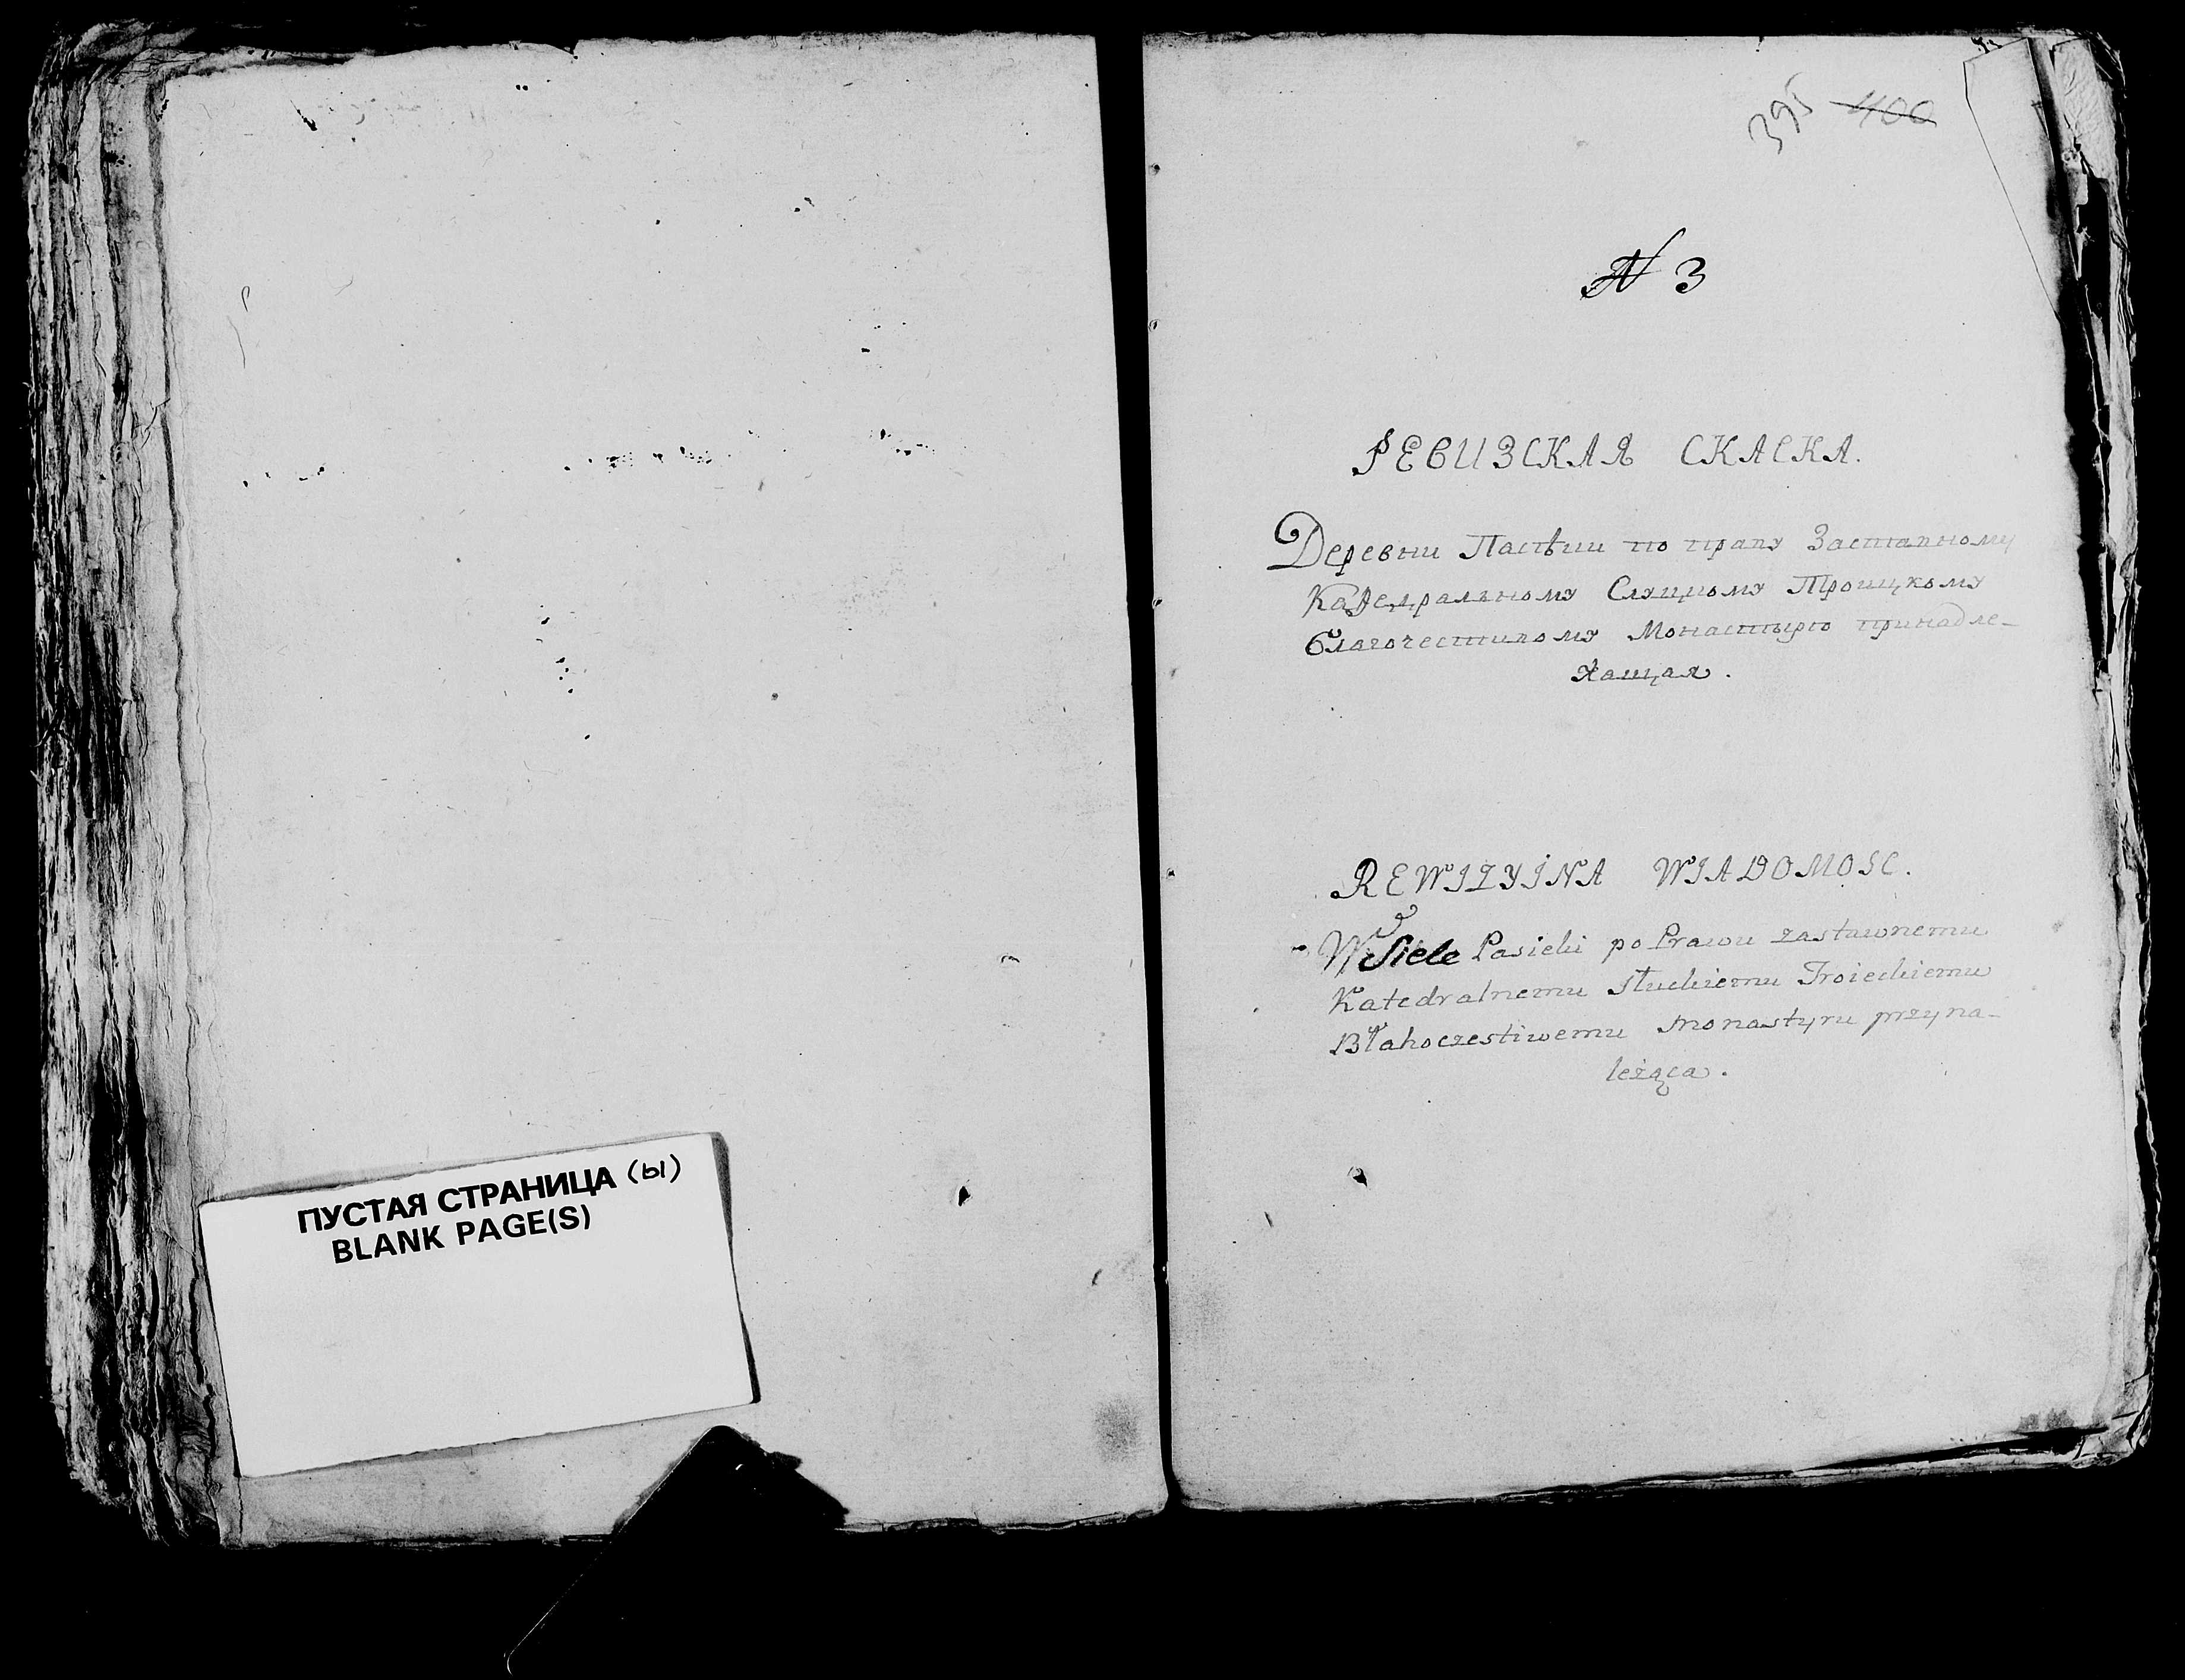 ПУСТАЯ СТРАНИЦА (ы)
BLANK PAGE(S)
395 400
N 3
РЕВИЗСКАЯ СКАСКА.
Деревни по праву Заставному
Каѳедральному Слуцкому Троицкому
Благочестивому Монастырю принадле-
жащая.
REWIZYINA WIADOMOSC.
W Siele Pasieki po Prawu zastawnemu
Katedralnemu Słuckiemu Troieckiemu
Błahoczestiwemu Monastyru przyna-
leżąca.